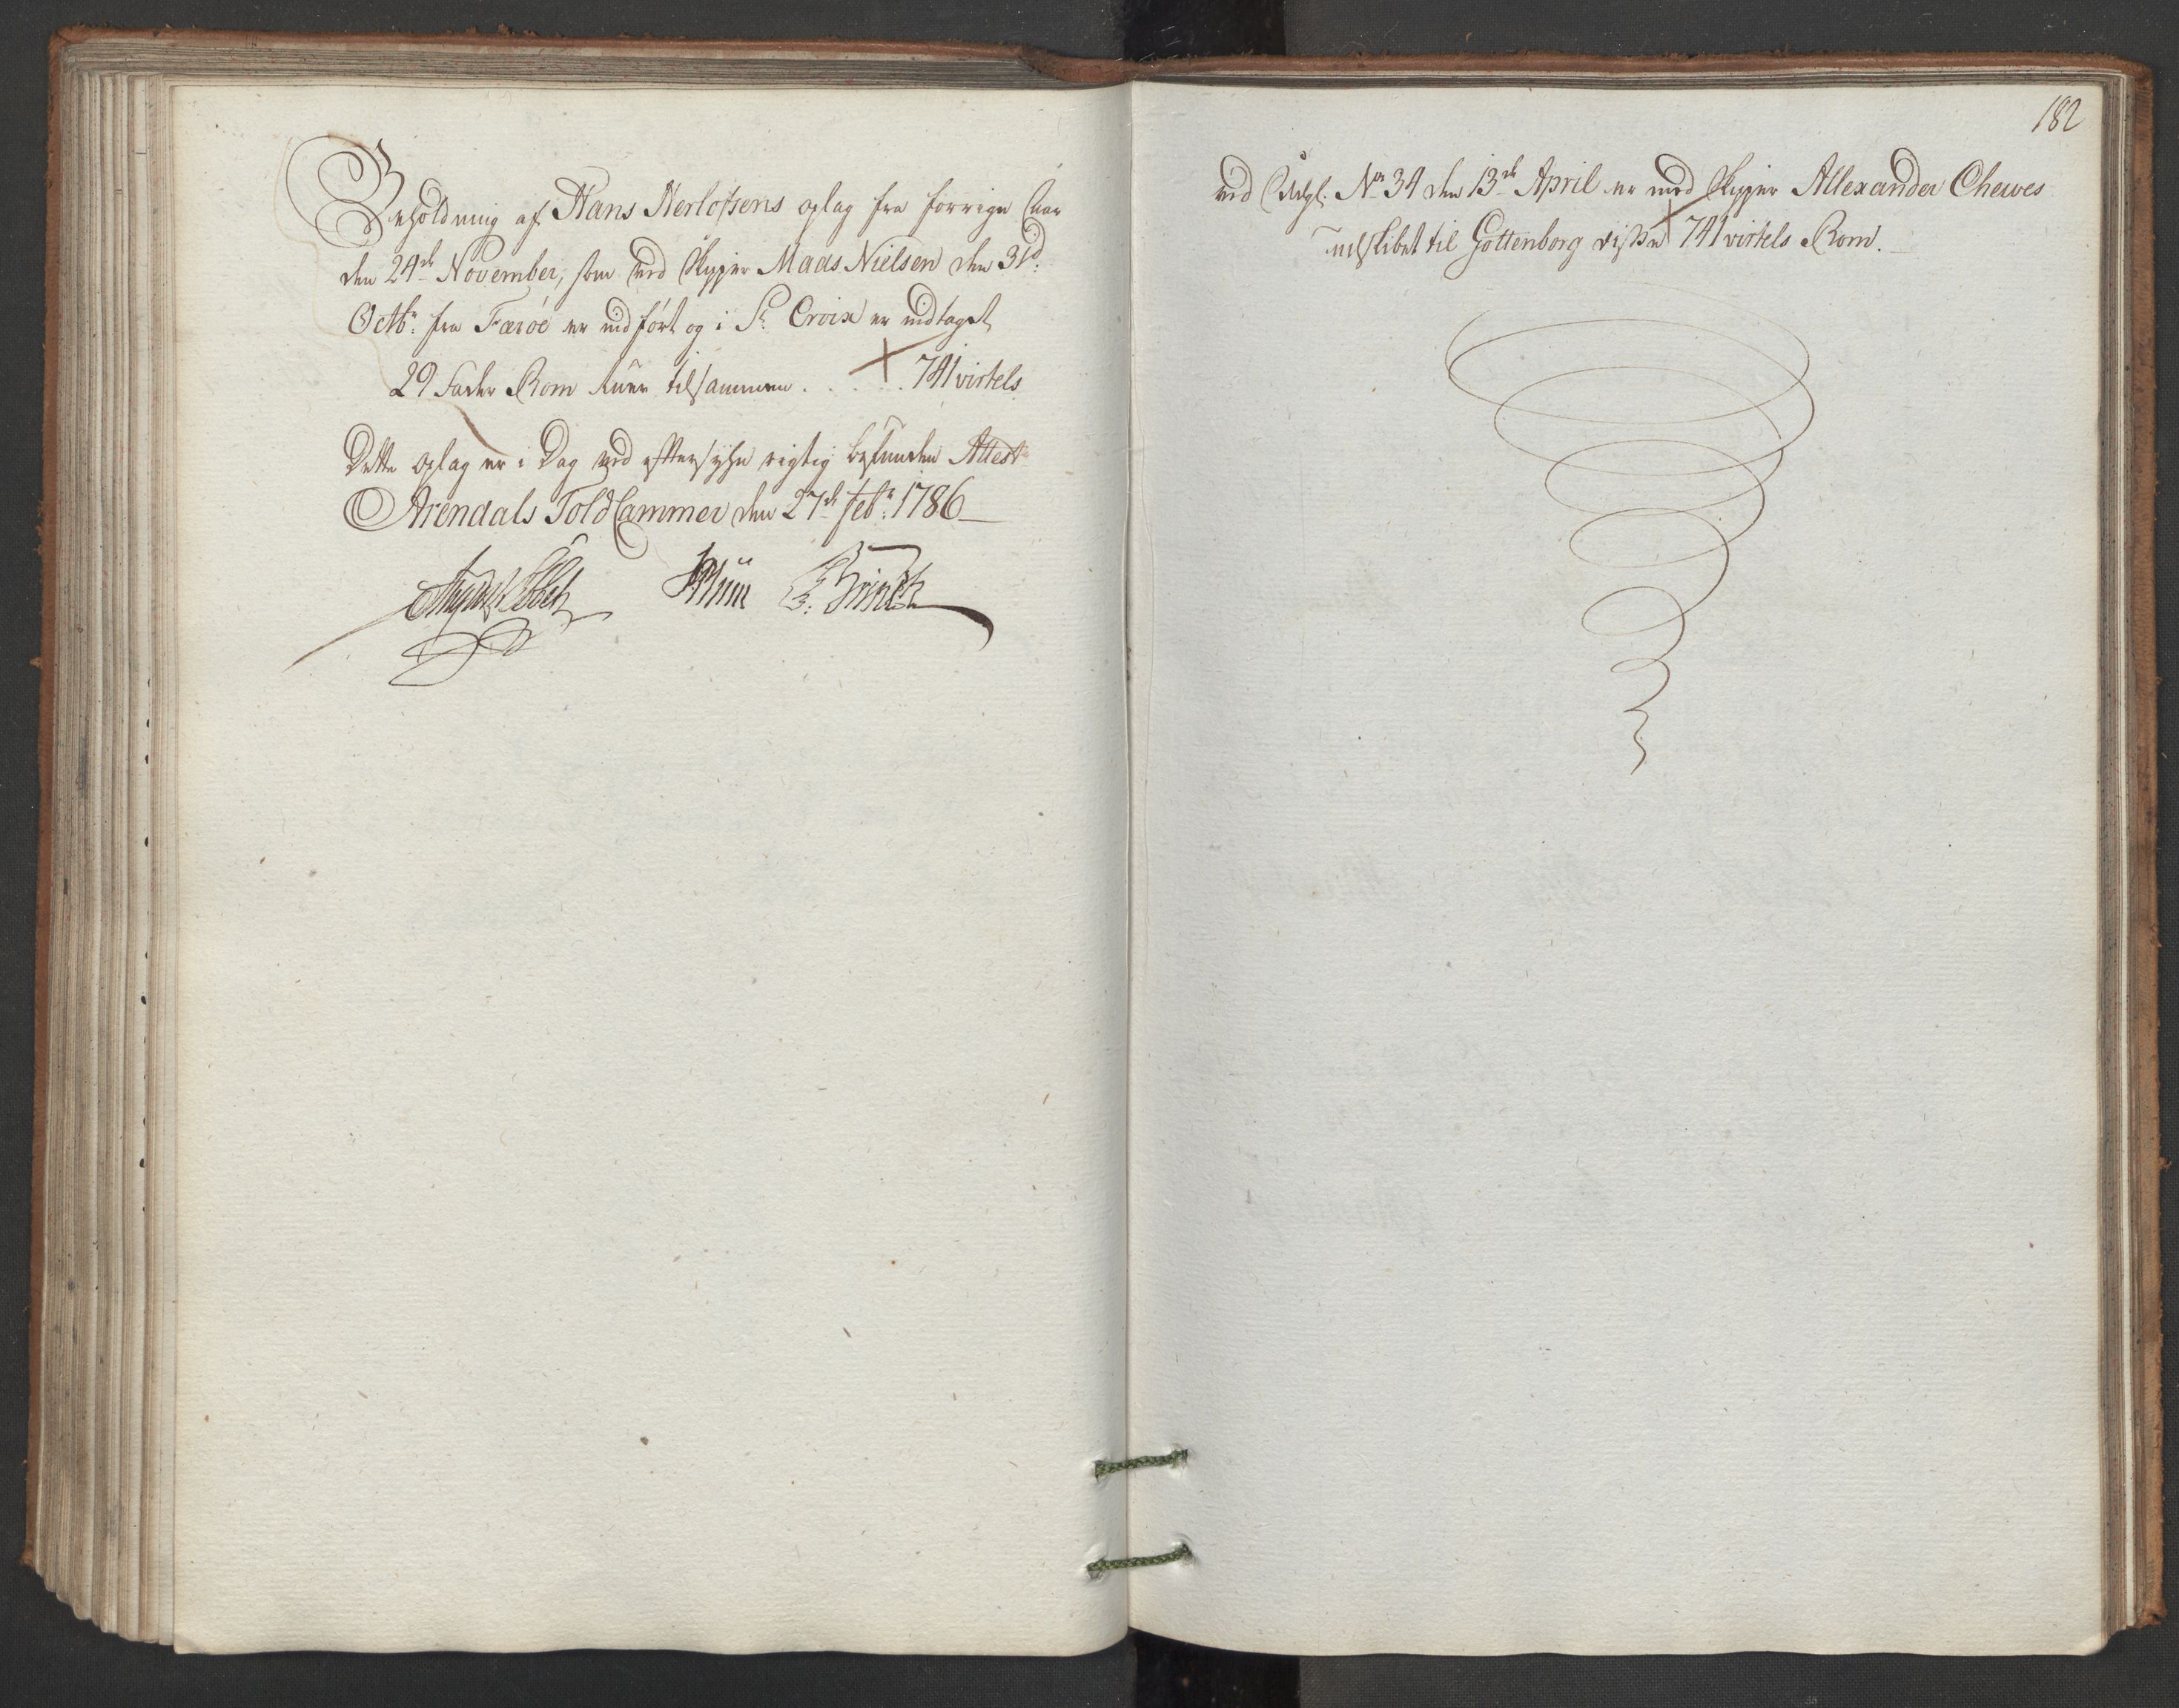 Beholdning af Hans Herlofsens oplag fra forrige Aar
den 24de November, som med Skipper Mads Nielsen den 31d:
Octbr: fra Færöe er indført og i St: Croix er indtaget
29 Fader Rom Luer tilsammen . . . . 741 virtels
Dette oplag er i Dag ved eftersyn rigtig befunden Attest:
Arendals Told Cammer den 27de febr: 1786
182
ved Udgl: No 34 den 13de April er med Skipper Allexander Chewes
udskibet til Gottenborg disse 741 virtels Rom.